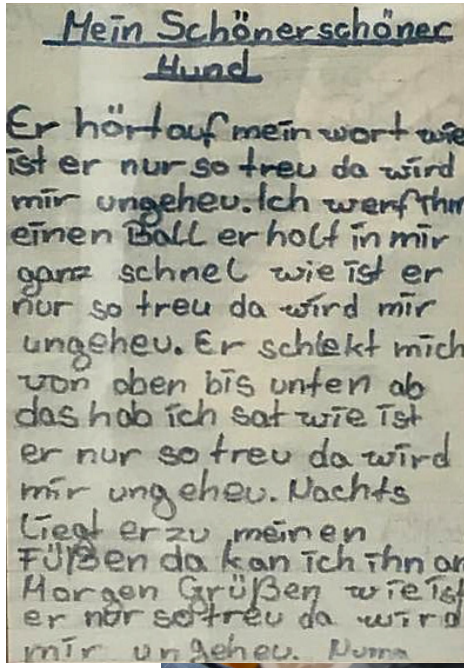 Mein Schönerschöner
Hund
Er hört auf mein wort wie
ist er nur so treu da wird
mir ungeheu. Ich werf Ihn
einen Ball er holt in mir
ganz schnel wie ist er
nur so treu da wird mir
ungeheu. Er schlekt mich
von oben bis unten ab
das hab ich sat wie ist
er nur so treu da wird
mir ungeheu. Nachts
Liegt er zu meinen
Füßen da kan ich ihn am
Morgen Grüßen wie ist
er nur so treu da wird
mir ungeheu. Numa